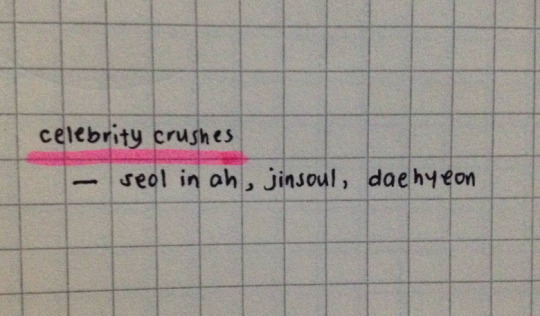 celebrity crushes
— seol in ah, jinsoul, daehyeon